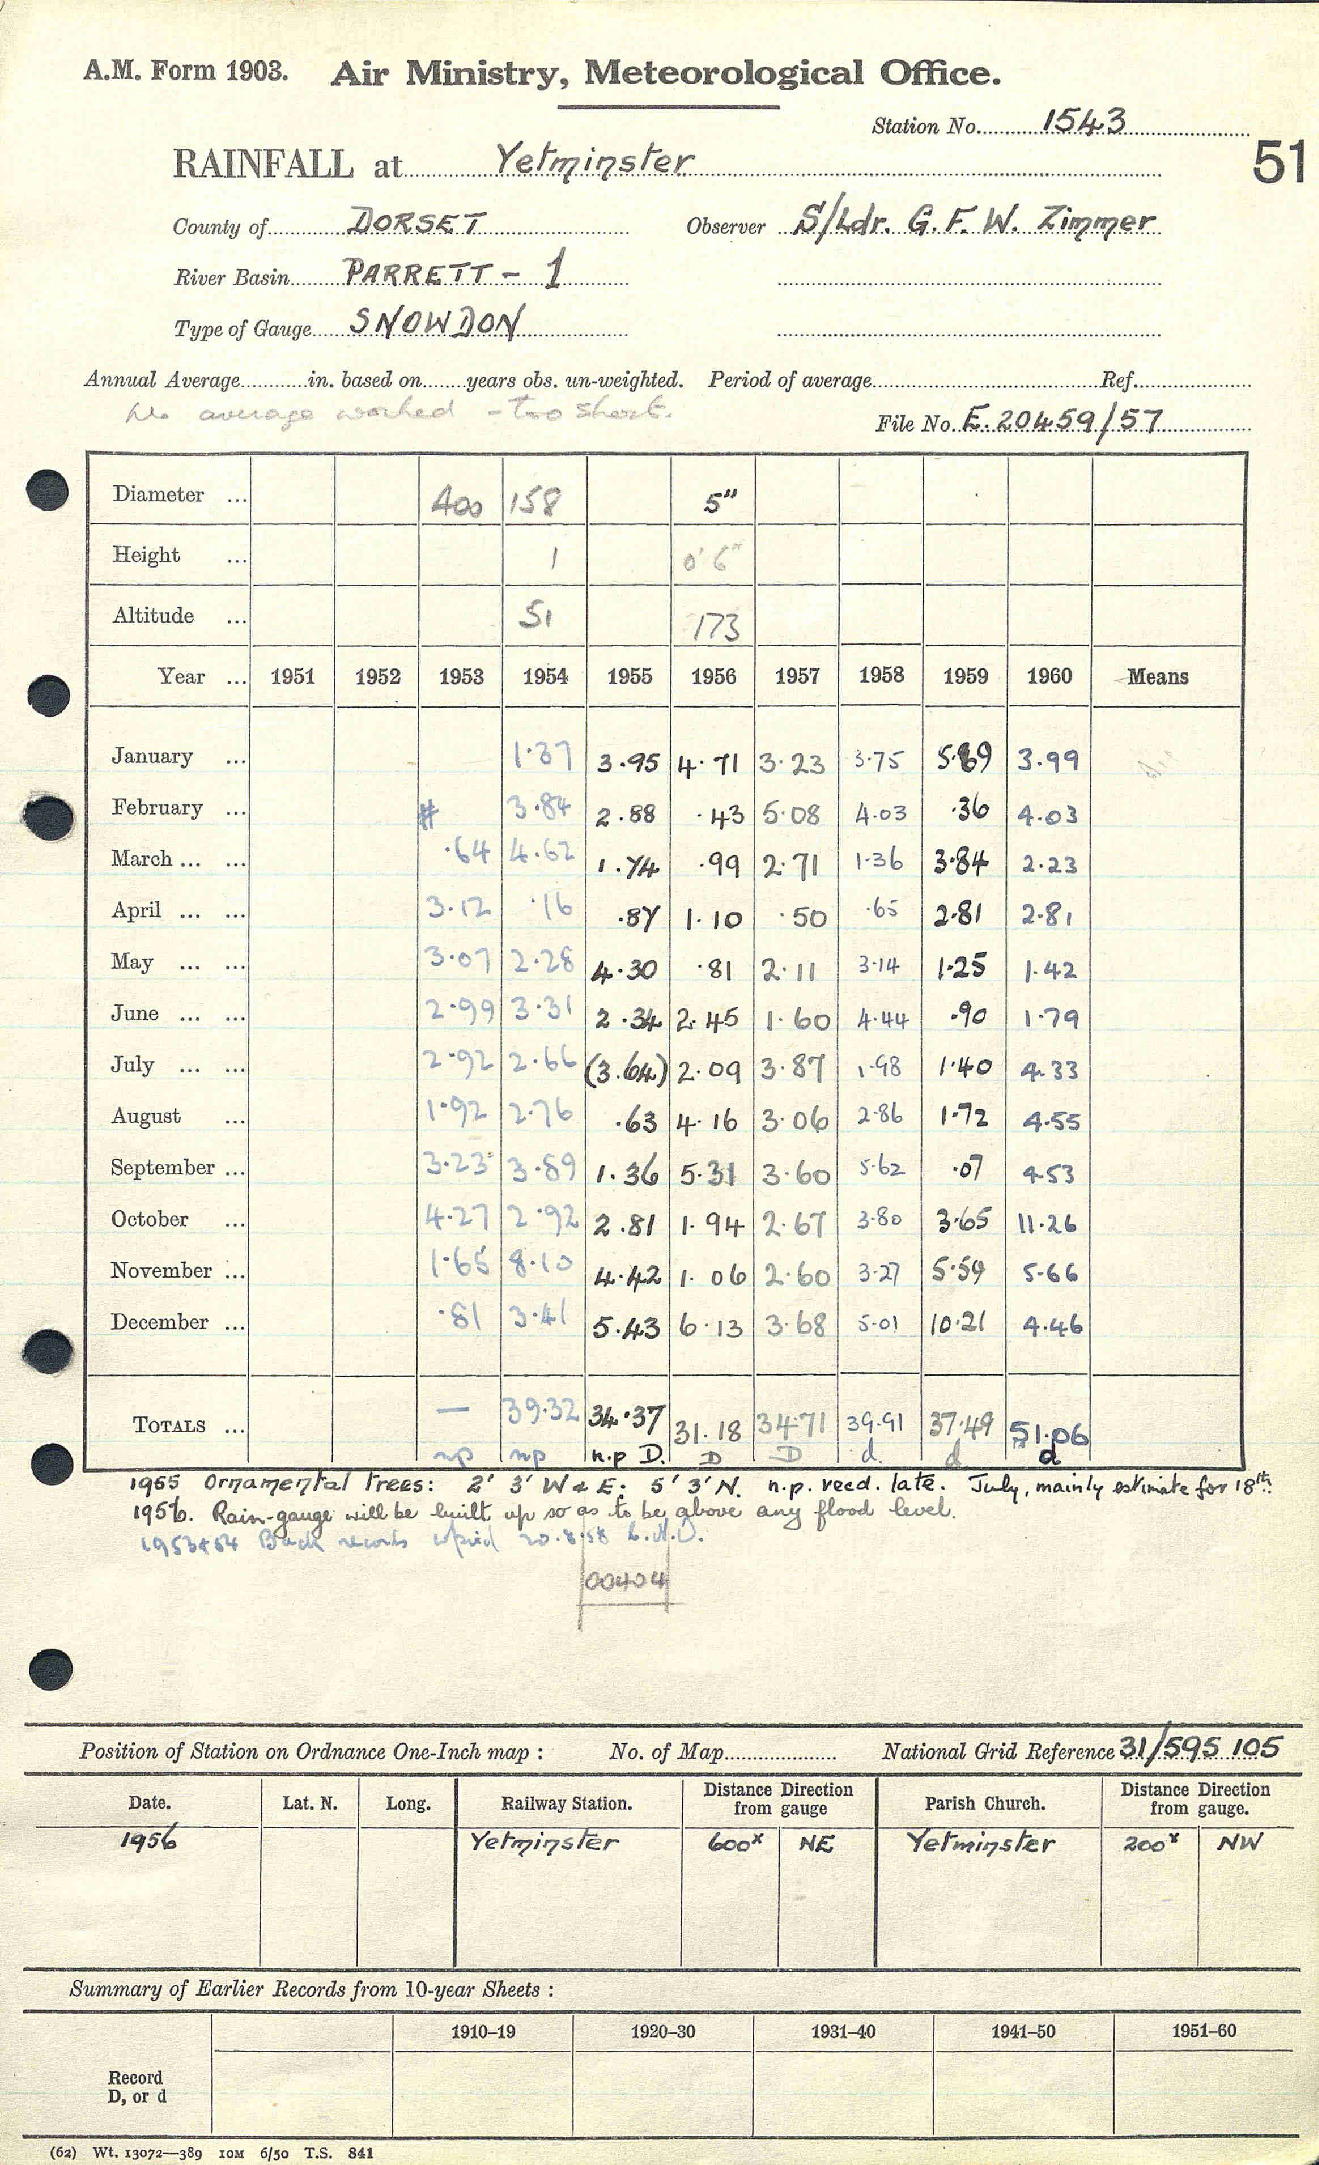 A.M. Form 1903. Air Ministry, Meteorological Office.
Station No. 1543
51
RAINFALL at Yetminster
County of DORSET Observer S/Ldr. G. F. W. Zimmer
River Basin PARRETT - 1
Type of Gauge SNOWDON
Annual Average in. based on years obs. un-weighted. Period of average Ref.
No average worked - too short.
File No. E. 20459/57
Diameter ... 400 158 5"
Height ... 1 0' 6"
Altitude ... 51 173
Year ... 1951 1952 1953 1954 1955 1956 1957 1958 1959 1960 Means
January ... 1.37 3.95 4.71 3.23 3.75 5.89 3.99
February ... # 3.84 2.88 .43 5.08 4.03 .36 4.03
March ... ... .64 4.62 1.74 .99 2.71 1.36 3.84 2.23
April ... ... 3.12 .16 .87 1.10 .50 .65 2.81 2.81
May ... ... 3.07 2.28 4.30 .81 2.11 3.14 1.25 1.42
June ... ... 2.99 3.31 2.34 2.45 1.60 4.44 .90 1.79
July ... ... 2.92 2.66 (3.64) 2.09 3.87 1.98 1.40 4.33
August ... 1.92 2.76 .63 4.16 3.06 2.86 1.72 4.55
September ... 3.23 3.89 1.36 5.31 3.60 5.62 .07 4.53
October ... 4.27 2.92 2.81 1.94 2.67 3.80 3.65 11.26
November ... 1.65 8.10 4.42 1.06 2.60 3.27 5.59 5.66
December ... .81 3.41 5.43 6.13 3.68 5.01 10.21 4.46
TOTALS ... — 39.32 34.37 31.18 34.71 39.91 37.49 51.06
np np n.p D. D D d. d d
1955 Ornamental trees: 2' 3' W & E: 5' 3' N. n.p. recd. late. July, mainly estimate for 18th.
1956. Rain-gauge will be built up so as to be above any flood level.
1953+54 Back records copied 20.8.58
00404
Position of Station on Ordnance One-Inch map : No. of Map National Grid Reference 31/595 105
Date. Lat. N. Long. Railway Station. Distance Direction from gauge Parish Church. Distance Direction from gauge.
1956 Yetminster 600x NE Yetminster 200x NW
Summary of Earlier Records from 10-year Sheets :
1910–19 1920–30 1931–40 1941–50 1951–60
Record
D, or d
(62) Wt. 13072—389 10M 6/50 T.S. 841